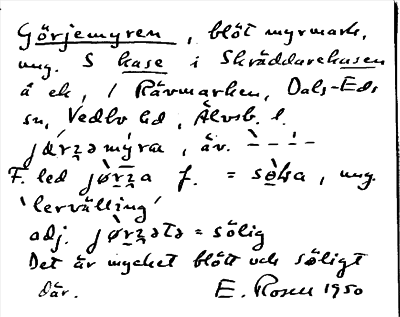 Görjemyren, blöt myrmark,
ung. S hase i Skräddarehusen
å ek, / Rävmarken, Dals-Eds
sn, Vedbo hd, Älvsb. l.
jǿrʒəmýra, äv. – – – –
F. led jørʒa f. = sølsa, ung.
'lervälling'
adj. jørʒətə = sölig
Det är mycket blött och söligt
där. E. Rosell 1950